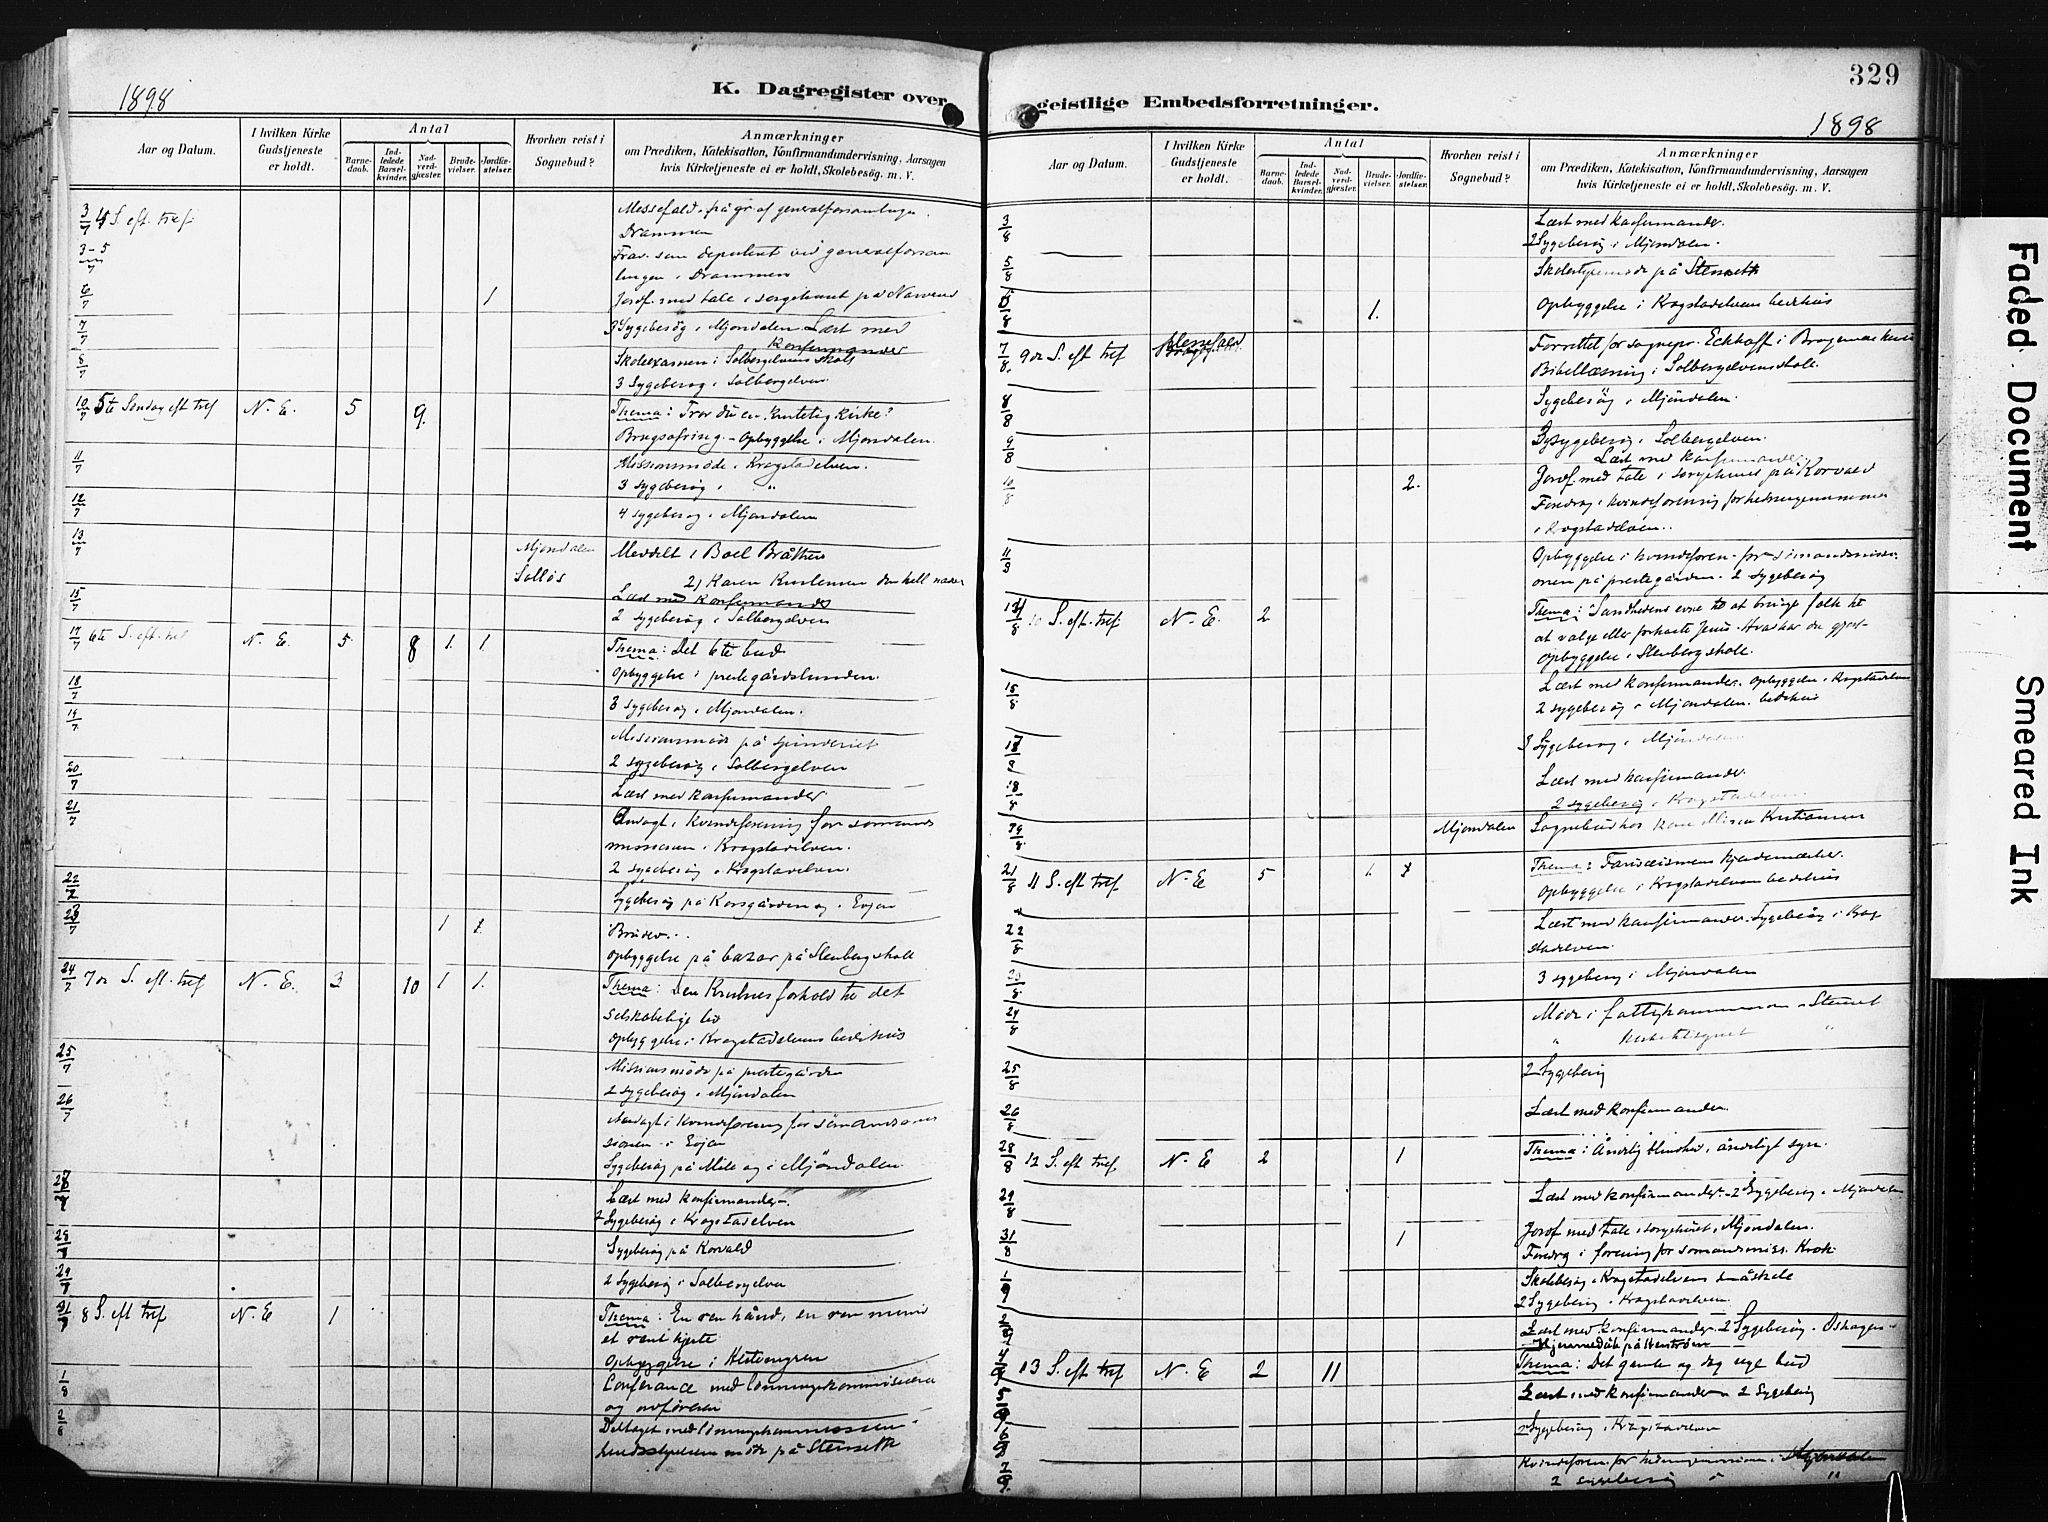 1898
K. Dagregister over
Aar og Datum.
I hvilken Kirke Gudstjeneste er holdt.
Antal
Barnedaab.
Indledede Barselkvinder.
Nadverdgjæster.
Brudevielser.
Jordfæstelser.
Hvorhen reist i Sognebud?
Anmærkninger
om Prædiken, Katekisation, Konfirmandundervisning, Aarsagen
hvis Kirketjeneste ei er holdt, Skolebesøg. m. V.
3/7 4 S. eft. tref. Messefald på gr. af generalforsamlingen i
Drammen
3-5/7 Frav. som deputent ved generalforsam
lingen i Drammen
6/7 1 Jordf. med tale i sørgehuset på
7/7 3 Sygebesøg i Mjøndalen. Læst med
konfirmander
8/7 Skoleexamen i Solbergelvens skole
3 Sygebesøg i Solbergelven.
10/7 5te Søndag eft tref N. E. 5 9. Thema: Tror du en kristelig kirke?
- Opbyggelse i Mjøndalen.
11/7 Missionsmøde i Krogstadelven.
3 sygebesøg i "
12/7 4 sygebesøg i Mjøndalen
13/7 Mjøndalen Meddelt 1 Boel Bråthen
Solløs 2) Karen Kristensen den hell. nadver
15/7 Læst med konfirmander
2 sygebesøg i Solbergelven
17/7 6te S. eft. tref N. E. 5 8 1. 1. Thema: Det 6te bud
Opbyggelse i prestegårdslunden.
18/7 3 sygebesøg i Mjøndalen.
19/7 Missionsmøde på spinderiet
2 sygebesøg i Solbergelven
20/7 Læst med konfirmander.
21/7 Andagt i kvindeforening for sømands
missionen i Krogstadelven.
2 sygebesøg i Krogstadelven.
22/7 Sygebesøg på Korsgården og i Evjen
23/7 1 1 Bruder..
Opbyggelse på bazar på Stenberg skole
24/7 7de S. eft. tref N. E. 3 10 1 1. Thema: Den Kristnes forhold til det
selskabelige liv
Opbyggelse i Krogstadelvens bedehus
25/7 Missionsmøde på prestegården
2 sygebesøg i Mjøndalen
26/7 Andagt i kvindeforening for sømandsmis
sionen i Evjen
Sygebesøg på Mile og i Mjøndalen.
Læst med konfirmander.
2 Sygebesøg i Krogstadelven
Sygebesøg på Korvald
29/7 2 Sygebesøg i Solbergelven
31/7 8 S. eft tref N. E. 1 Thema: En ren hånd, en ren mund
et rent hjerte
Opbyggelse i Hestengren
1/8 Conferance med lønningskommissionen
og ordføreren
2/8 Deltaget med lønningskommissionen i
herredsstyrelsens møde på Stensetth
329
geistlige Embedsforretninger.
1898
Aar og Datum.
I hvilken Kirke Gudstjeneste er holdt.
Antal
Barnedaab.
Indledede Barselkvinder.
Nadverdgjæster.
Brudevielser.
Jordfæstelser.
Hvorhen reist i Sognebud?
Anmærkninger
om Prædiken, Katekisation, Konfirmandundervisning, Aarsagen
hvis Kirketjeneste ei er holdt, Skolebesøg. m. V.
3/8 Læst med konfirmander.
2 Sygebesøg i Mjøndalen.
5/8 Skolestyremøde på Stensetth
6/8 1. Opbyggelse i Krogstadelvens bedehus
7/8 9de S. eft tref Messefald Forrettet for sognepr. Eckhoff i Bragernæs kirke
Bibellæsning i Solbergelvens skole.
8/8 Sygebesøg i Mjøndalen.
9/8 3 sygebesøg i Solbergelven.
Læst med konfirmander.
10/8 2. Jordf. med tale i sørgehuset på Korvald
Foredrag i kvindeforening for hedningemissionen
i Krogstadelven.
11/8 Opbyggelse i kvindeforen. for sømandsmissi
onen på prestegården. 2 sygebesøg
14/8 10 S. eft. tref N. E. 2 Thema: Sandhedens evne til at bringe folk til
at vælge eller forkaste Jesus. Hvad har du gjort
Opbyggelse i Stenberg skole.
15/8 Læst med konfirmander. Opbyggelse i Krogstadelvens
2 sygebesøg i Mjøndalen. bedehus
3 Sygebesøg i Mjøndalen.
18/8 Læst med konfirmander.
2 sygebesøg i Krogstadelven.
19/8 Mjøndalen Sognebud hos Kristiansen
21/8 11 S. eft tref. N. E 5 1. 1 Thema: Farisæismens kjendemærker.
Opbyggelse i Krogstadelvens bedehus
22/8 Læst med konfirmander. Sygebesøg i Krog
stadelven.
23/8 3 sygebesøg i Mjøndalen
24/8 Møde i fattigkommissionen i Stenset
" "
25/8 2 Sygebesøg
26/8 Læst med konfirmander.
28/8 12 S. eft tref N. E 2 1 Thema: Åndelig blindhed, åndeligt syn.
29/8 Læst med konfirmander. 2 Sygebesøg i Mjøndalen
31/8 1 Jordf med tale i sørgehuset i Mjøndalen.
Foredrag i forening for sømandsmiss. Krok
1/9 Skolebesøg i Krogstadelvens småskole
2 Sygebesøg i Krogstadelven.
2/9 Læst med konfirmander 2 Sygebesøg
4/9 13 S. eft tref N. E 2 11 Thema: Det gamle og dog nye bud
5/9 Læst med konfirmander 2 Sygebesøg
6/9 Sygebesøg i Krogstadelven
7/9 Kvindeforen. for hedningemissionen i Mjøndalen
2 sygebesøg i "
Faded Document
Smeared Ink